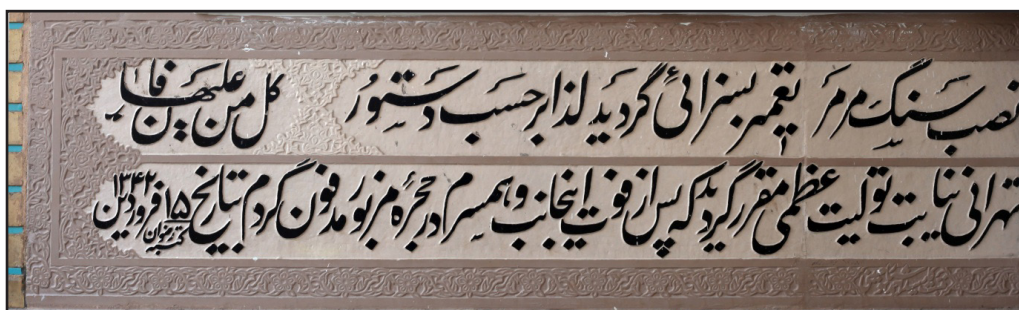 نصب سنگ مرمر تعمیر بسزائی گردید لذا بر حسب دستور کل من علیها فان
تهرانی نیابت تولیت عظمی مقرر گردید که پس از فوت اینجانب و همسرم در حجرهٔ مزبور مدفون گردم بتاریخ ۱۵ فروردین ۱۳۴۲